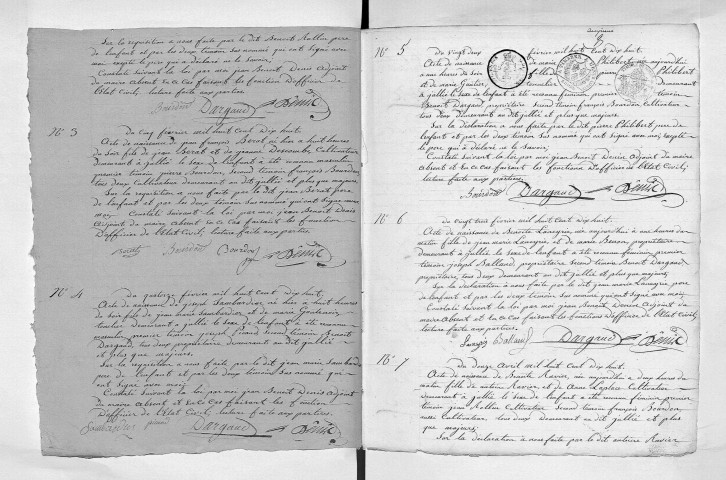 Sur la requisition a nous faite par le dit Benoit Rollin pere
de l'enfant et par les deux temoin sus nommé qui ont signé avec
moi excepté le pere qui a déclaré ne le savoir.
Constaté suivant la loi par moi jean Benoit Denis Adjoint
du maire Absent et en ce Cas faisant les fonction D'officier de
l'Etat Civil, lecture faite aux parties.
Bourdon Dargaud Denis
N° 3
Du Cinq fevrier mil huit Cent Dix huit.
Acte de naissance de jean françois Berat né hier a huit heures
du soir fils de jean Berat et de jeanne Descombe Cultivateur
Demeurant a jullié le sexe de l'enfant a été reconnu masculin
premier temoin pierre Bourdon, Second temoin françois Bourdon
tous deux Cultivateur demeurant au dit jullié et plus que majeurs.
Sur la requisition a nous faite par le dit jean Berat pere
de l'enfant et par les deux témoins Sus nommé qui ont Signé avec
moi. Constaté Suivant la loi par moi jean Benoit Denis
Adjoint du maire Absent et en ce Cas faisant les fonction
D'officier de l'Etat Civil, lecture faite aux parties.
Bourdon Bourdon Denis
N° 4
Du quatorze fevrier mil huit Cent Dix huit.
Acte de naissance de joseph Sambardier né hier a huit heures
du soir fils de jean marie Sambardier et de marie
Demeurant a jullié le sexe de l'enfant a été reconnu
masculin premier temoin joseph Second temoin Benoit
Dargaud, tous deux propriétaire demeurant au dit jullié
et plus que majeurs.
Sur la requisition a nous faite par le dit jean marie Sambardier
pere de l'enfant et par les deux temoins Sus nommé qui
ont signé avec moi.
Constaté Suivant la loi par moi jean Benoit Denis Adjoint
du maire Absent et en ce Cas faisant les fonctions
D'officier de l'Etat Civil, lecture faite aux parties.
Dargaud Denis
N° 5
Du vingt deux fevrier mil huit Cent dix huit.
Acte de naissance de marie Philibert née aujourdhui
a une heures du soir fille de pierre Philibert
et de marie Demeurant
a jullié le sexe de l'enfant a été reconnu féminin premier temoin
Benoit Dargaud propriétaire Second temoin françois Bourdon Cultivateur
tous deux demeurant au dit jullié et plus que majeurs.
Sur la déclaration a nous faite par le dit pierre Philibert pere
de l'enfant et par les deux temoin Sus nommé qui ont signé avec moi excepté
le pere qui a déclaré ne le Savoir.
Constaté Suivant la loi par moi jean Benoit Denis Adjoint du maire
Absent et en ce Cas faisant les fonctions D'officier de l'Etat Civil,
lecture faite aux parties.
Bourdon Dargaud Denis
N° 6
Du vingt trois fevrier mil huit Cent dix huit.
Acte de naissance de Benoite née aujourdhui a du
matin fille de jean marie et de marie Besson, propriétaire
demeurant a jullié le Sexe de l'enfant a été reconnu féminin, premier
témoin joseph Balland propriétaire Second temoin Benoit Dargaud
propriétaire tous deux demeurant au dit jullié et plus que majeurs.
Sur la déclaration a nous faite par le dit jean marie pere
de l'enfant et par les deux temoin Sus nommé qui ont signé avec moi.
Constaté Suivant la loi par moi jean Benoit Denis Adjoint du
maire Absent et en ce Cas faisant les fonctions D'officier de l'Etat Civil,
lecture faite aux parties.
Balland Dargaud Denis
N° 7
Du Douze Avril mil huit Cent dix huit.
Acte de naissance de Benoite Ravier, née aujourdhui a deux heures du
matin fille de antoine Ravier et de Anne Cultivateur
demeurant a jullié le sexe de l'enfant a été reconnu féminin premier
temoin jean Rollin Cultivateur Second temoin françois Bourdon
aussi Cultivateur, tous deux demeurant au dit jullié et plus
que majeurs.
Sur la déclaration a nous faite par le dit antoine Ravier